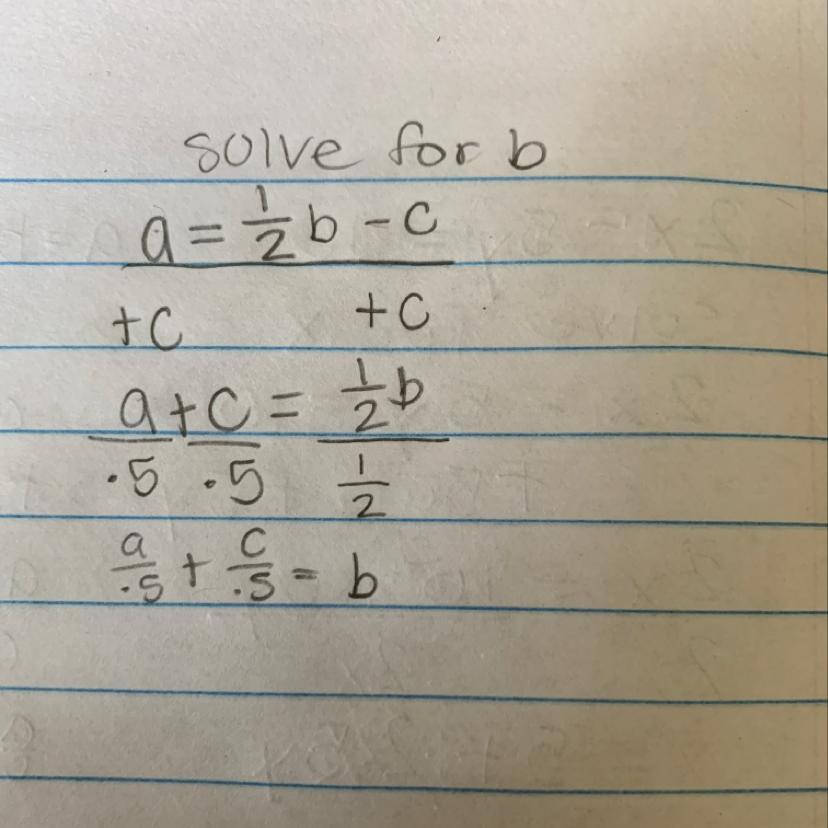 solve for b
a = 1/2 b - c
+c +c
a + c = 1/2 b
.5 .5 1/2
a/.5 + c/.5 = b